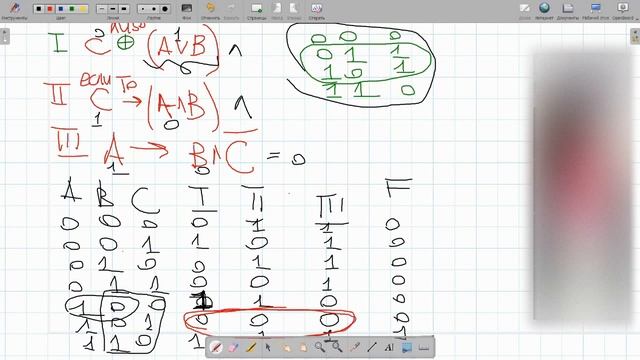 Инструменты
Цвета
Линии
Отменить
Вернуть
Очистить
Страницы
Стереть
Доски
Интернет
Документы
Рабочий стол
Фон
I C ⊕ (A∨B) ∧
0 0 0
0 1 1
1 0 1
1 1 0
II C если → то (A∧B) ∧
1 0
III A → B∧C = 0
1 0
A B C I II III F
0 0 0 0 1 1 0
0 0 1 1 0 1 0
0 1 0 0 1 1 0
0 1 1 0 0 1 0
1 0 0 1 1 0 0
1 0 1 0 0 0 0
1 1 0 1 1 1 1